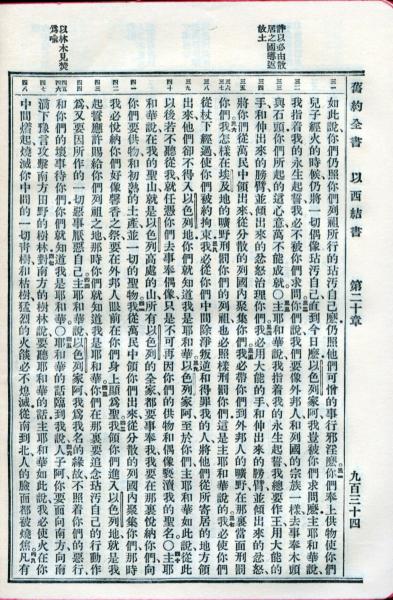 許以必由散
居之國導返
故土
以林木見焚
爲喻
舊約全書 以西結書 第二十章 九百三十四
如此說、你們仍照你們列祖所行的玷污自己麼仍照他們可憎的事行邪淫麼你們奉上供物使你們
兒子經火的時候仍將一切偶像玷污自己直到今日麼以色列家阿我豈被你們求問麼主耶和華說、
我指着我的永生起誓我必不被你們求問你們說我們要像外邦人和列國的宗族一樣去事奉木頭
與石頭你們所起的這心意萬不能成就○主耶和華說我指着我的永生起誓我總要作王用大能的
手和伸出來的膀臂並傾出來的忿怒治理你們我必用大能的手和伸出來的膀臂並傾出來的忿怒
將你們從萬民中領出來從分散的列國內聚集你們我必帶你們到外邦人的曠野在那裏當面刑罰
你們我怎樣在埃及地的曠野刑罰你們的列祖也必照樣刑罰你們這是主耶和華說的我必使你們
從杖下經過使你們被約拘束我必從你們中間除淨叛逆和得罪我的人將他們從所寄居的地方領
出來他們卻不得入以色列地你們就知道我是耶和華以色列家阿至於你們主耶和華如此說從此
以後若不聽從我就任憑你們去事奉偶像只是不可再因你們的供物和偶像褻瀆我的聖名○主耶
和華說在我的聖山就是以色列高處的山所有以色列的全家都要事奉我我要在那裏悅納你們向
你們要供物和初熟的土產並一切的聖物我從萬民中領你們出來從分散的列國內聚集你們那時
我必悅納你們好像馨香之祭要在外邦人眼前在你們身上顯爲聖我領你們進入以色列地就是我
起誓應許賜給你們列祖之地那時你們就知道我是耶和華你們在那裏要追念玷污自己的行動作
爲又要因所作的一切惡事厭惡自己主耶和華說以色列家阿我爲我名的緣故不照着你們的惡行
和你們的壞事待你們你們就知道我是耶和華○耶和華的話臨到我說人子阿你要面向南方向南
滴下豫言攻擊南方田野的樹林對南方的樹林說要聽耶和華的話主耶和華如此說我必使火在你
中間燒起燒滅你中間的一切青樹和枯樹猛烈的火燄必不熄滅從南到北人的臉面都被燒焦凡有